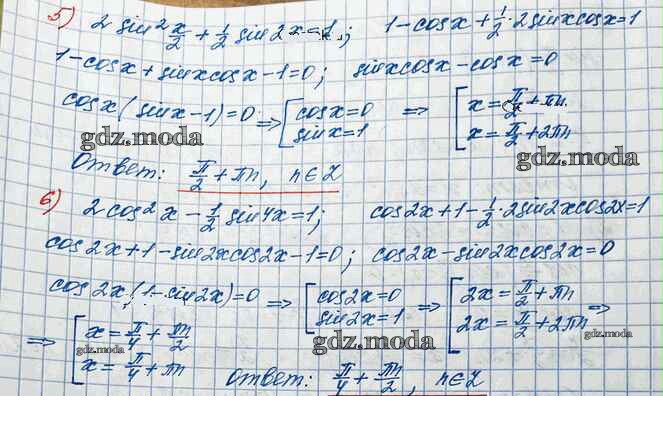 5) 2 sin² x/2 + 1/2 sin 2x = 1; 1 - cosx + 1/2 · 2 sinx cosx = 1
1 - cosx + sinx cosx - 1 = 0; sinx cosx - cosx = 0
cosx (sinx - 1) = 0 ⇒ [ cosx = 0 sinx = 1 ⇒ [ x = π/2 + πn x = π/2 + 2πn
gdz.moda
gdz.moda
Ответ: π/2 + πn, n ∈ Z
6) 2 cos² x - 1/2 sin 4x = 1; cos 2x + 1 - 1/2 · 2 sin 2x cos 2x = 1
cos 2x + 1 - sin 2x cos 2x - 1 = 0; cos 2x - sin 2x cos 2x = 0
cos 2x (1 - sin 2x) = 0 ⇒ [ cos 2x = 0 sin 2x = 1 ⇒ [ 2x = π/2 + πn 2x = π/2 + 2πn ⇒
gdz.moda
gdz.moda
gdz.moda
⇒ [ x = π/4 + πn/2 x = π/4 + πn
Ответ: π/4 + πn/2, n ∈ Z